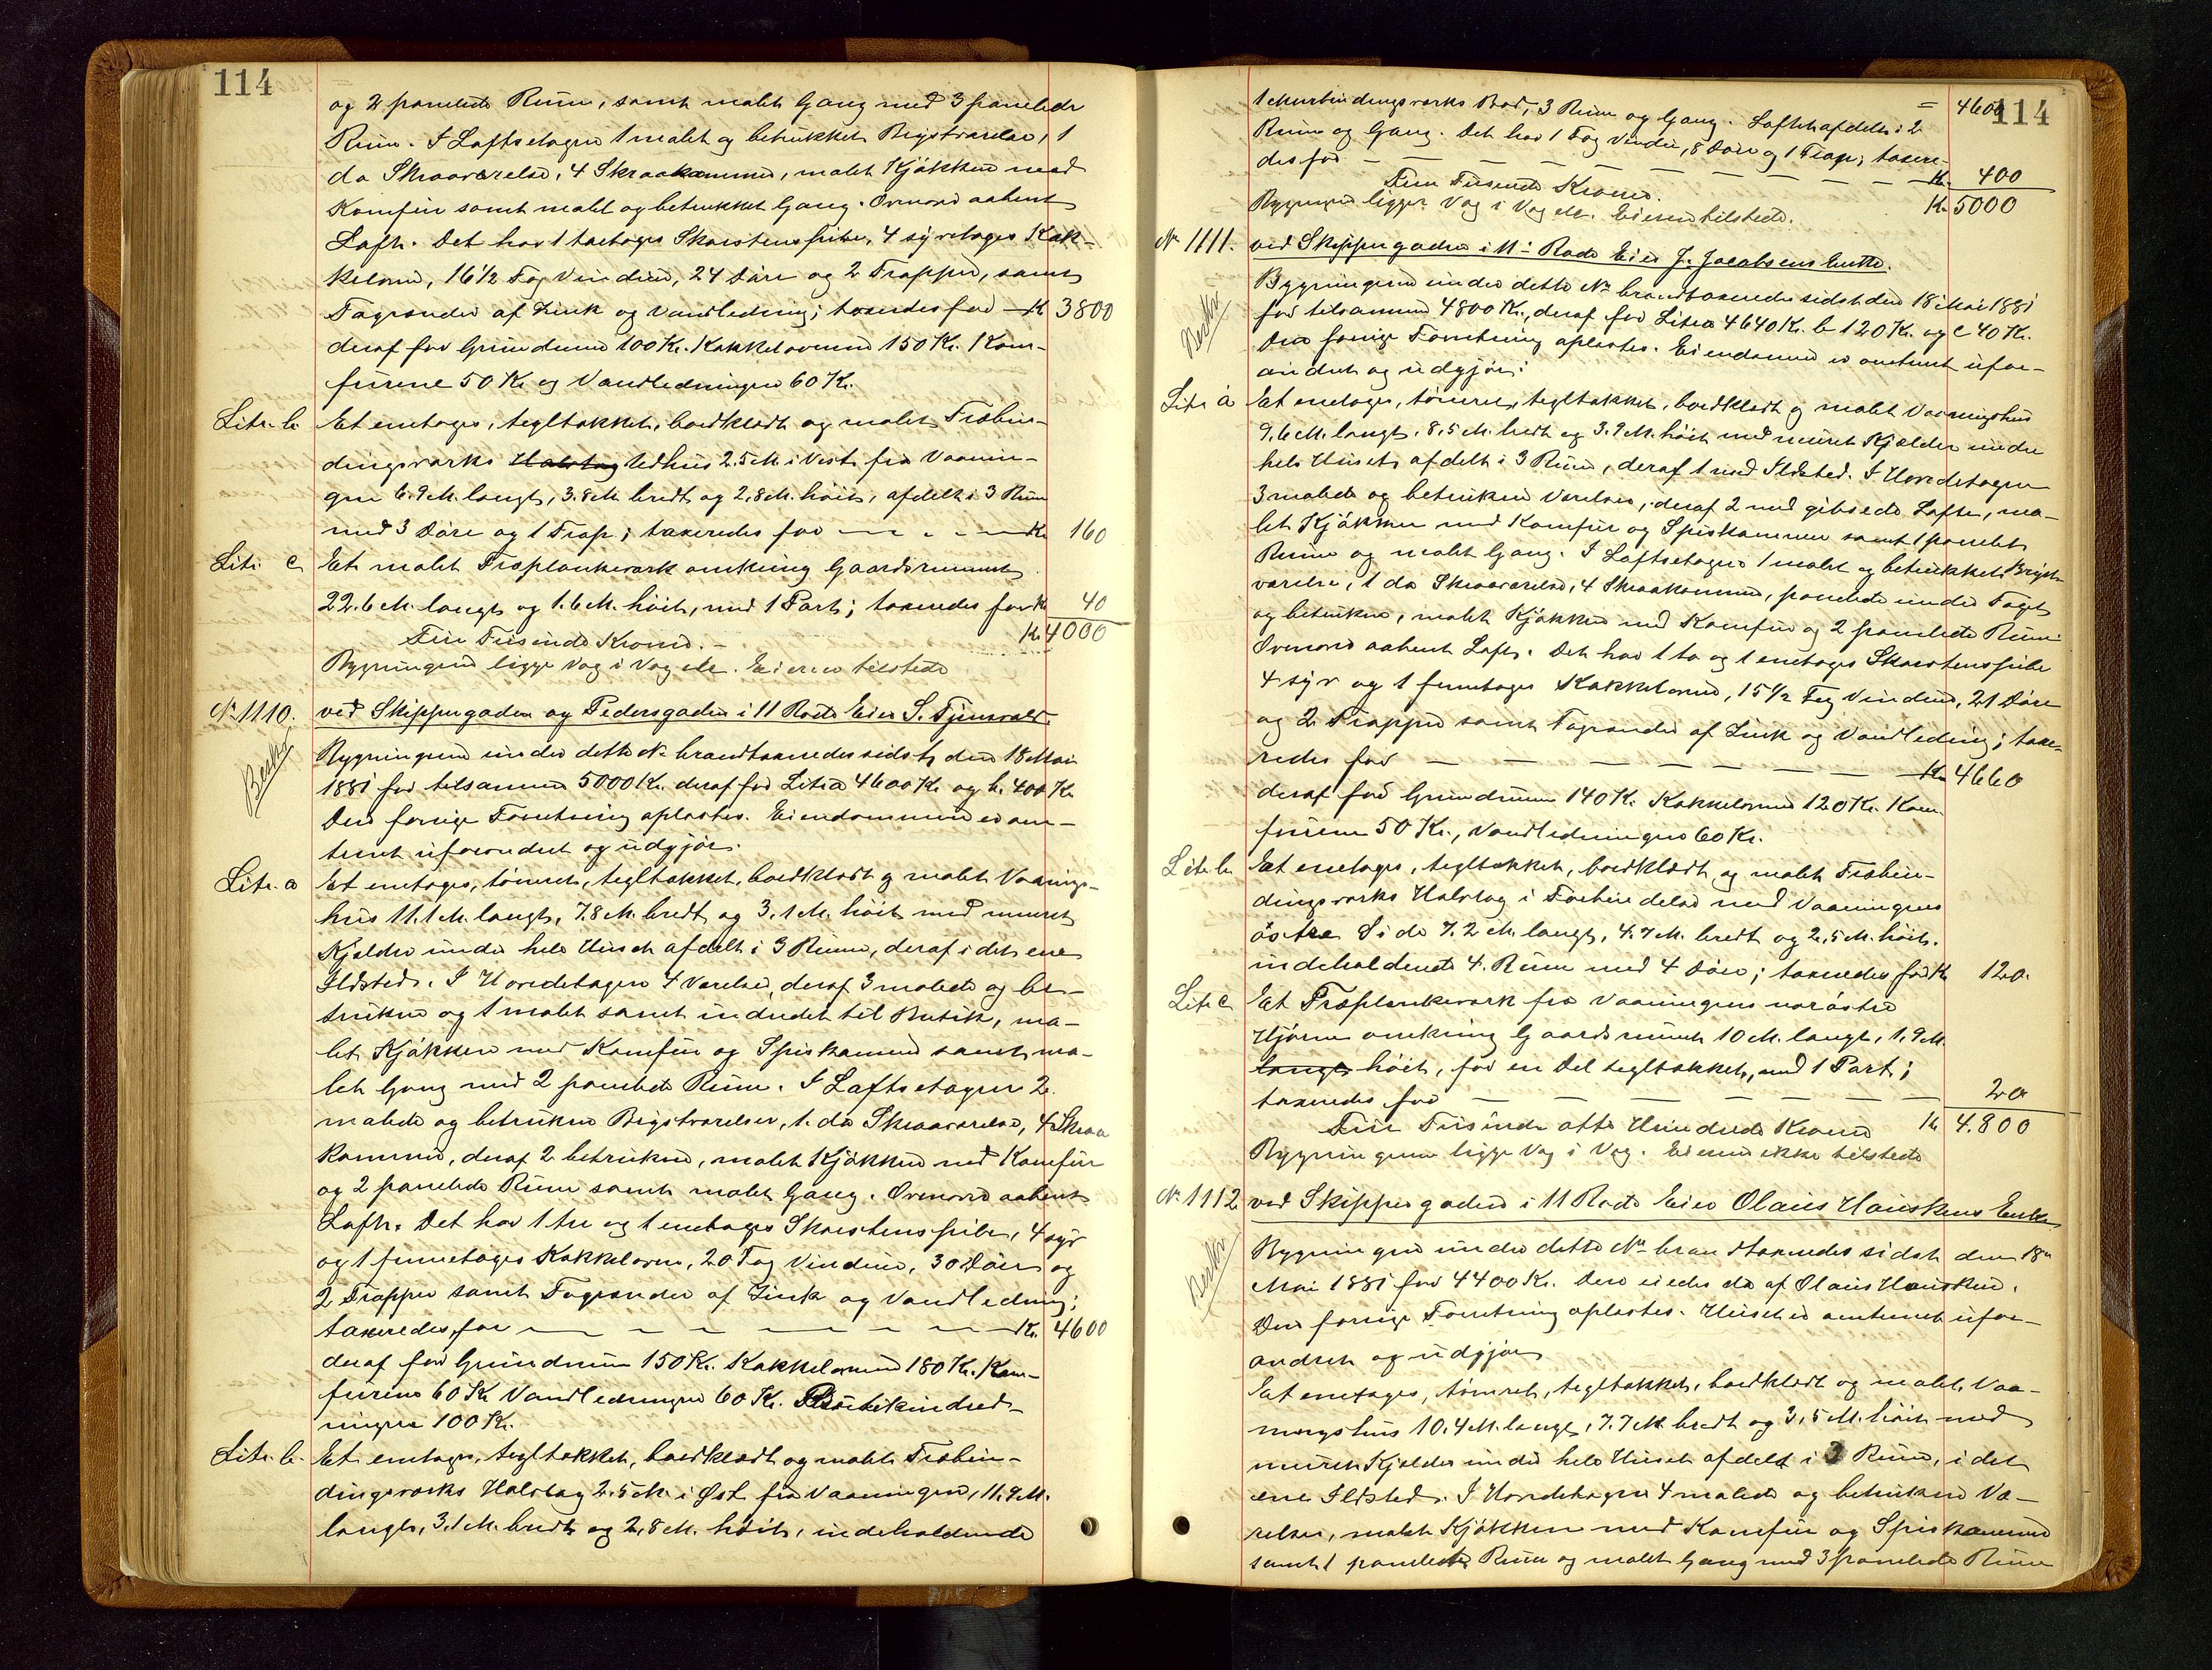 114
og 2 panelede Rum, samt malet Gang med 3 panelede
Rum. I Loftsetagen 1 malet og betrukket Brystværelse, 1
do Skraaværelse, 4 Skraakammer, malet Kjøkken med
Komfur samt malet og betrukket Gang. Ovenover aabent
Loft. Det har 1 toetages Skorstenspibe, 4 syvetages Kak-
kelovne, 16 1/2 Fag Vinduer, 24 Døre og 2 Trapper, samt
Tagrender af Zink og Vandledning; taxeredes for — Kr 3800
deraf for Grundmuren 100 Kr. Kakkelovnene 150 Kr. Kom-
furene 50 Kr og Vandledningen 60 Kr.
Litr. b. Et enetages, tegltækket, bordklædt og malet Træbin-
dingsværks Halvtag Udhus 2.5 M. i Vest fra Vaanin-
gen 6.9 M. langt, 3.8 M bredt og 2,8 M. høit, afdelt i 3 Rum
med 3 Døre og 1 Trap; taxeredes for — — — Kr 160
Litr. C Et malet Træplankeværk omkring Gaardsrummet
22.6 M. langt og 1.6 M. høit, med 1 Port; taxeredes for Kr 40
Kr 4000
Fire Tusinde Kroner. —
Bygningerne ligge Væg i Væg etc. Eieren tilstede
No 1110. ved Skippergaden og Pedersgaden i 11 Rode Eier S. Tjensvold.
Beskr
Bygningerne under dette No brandtaxeredes sidst den 18 Mai
1881 for tilsammen 5000 Kr. deraf for Litr a 4600 Kr og b. 400 Kr.
Den forrige Forretning oplæstes. Eiendommen er om-
trent uforandret og udgjør:
Litr. a Et enetages, tømret, tegltækket, bordklædt og malet Vaanings-
hus 11.1 M. langt, 7.8 M. bredt og 3.1 M. høit med muret
Kjelder under hele Huset afdelt i 3 Rum, deraf i det ene
Ildsted. I Hovedetagen 4 Værelser, deraf 3 malede og be-
trukne og 1 malet samt indredet til Butik, ma-
let Kjøkken med Komfur og Spiskammer samt ma-
let Gang med 2 panelede Rum. I Loftsetagen 2
malede og betrukne Brystværelser, 1 do Skraaværelse, 4 Skraa
kammer, deraf 2 betrukne, malet Kjøkken med Komfur
og 2 panelede Rum samt malet Gang. Ovenover aabent
Loft. Det har 1 tre og 1 enetages Skorstenspibe, 4 syv
og 1 femetages Kakkelovne, 20 Fag Vinduer, 30 Døre og
2 Trapper samt Tagrender af Zink og Vandledning;
taxeredes for — — — — — — Kr. 4600
deraf for Grundmuren 150 Kr. Kakkelovnene 180 Kr. Kom-
furene 60 Kr Vandledningen 60 Kr. Butikindred-
ningen 100 Kr.
Litr. b. Et enetages, tegltækket, bordklædt og malet Træbin-
dingsværks Halvtag 2.5 M. i Øst fra Vaaningen, 11.9 M.
langt, 3.1 M. bredt og 2,8 M. høit, indeholdende
114
1 Murbindingsværks Bod, 3 Rum og Gang. Loftet afdelt i 2 = 4600
Rum og Gang. Det har 1 Fag Vinduer, 8 Døre og 1 Trap; taxere-
des for — — — — — — Kr. 400
Kr. 5000
Fem Tusinde Kroner.
Bygningerne ligger Væg i Væg etc. Eieren tilstede.
No 1111. ved Skippergaden i 11te Rode Eier J. Jacobsens Enke.
Beskr
Bygningerne under dette No brandtaxeredes sidst den 18 Mai 1881
for tilsammen 4800 Kr., deraf for Litra 4640 Kr. b 120 Kr. og C 40 Kr.
Den forrige Forretning oplæstes. Eiendommen er omtrent ufor-
andret og udgjør:
Litr a Et enetages, tømret, tegltækket, bordklædt og malet Vaaningshus
9.6 M. langt, 8,5 M. bredt og 3.9 M. høit med muret Kjelder under
hele Huset, afdelt i 3 Rum, deraf 1 med Ildsted. I Hovedetagen
3 malede og betrukne Værelser, deraf 2 med gibsede Lofte, ma-
let Kjøkken med Komfur og Spiskammer samt 1 panelet
Rum og malet Gang. I Loftsetagen 1 malet og betrukket Bryst-
værelse, 1 do Skraaværelse, 4 Skraakammer, panelede under Taget
og betrukne, malet Kjøkken med Komfur og 2 panelede Rum
Ovenover aabent Loft. Det har 1 to og 1 enetages Skorstenspibe
4 syv og 1 femetages Kakkelovne, 15 1/2 Fag Vinduer, 21 Døre
og 2 Trapper samt Tagrender af Zink og Vandledning; taxe-
redes for — — — — — — Kr 4660
deraf for Grundmuren 140 Kr. Kakkelovnene 120 Kr. Kom-
furene 50 Kr., Vandledningen 60 Kr.
Litr b Et enetages, tegltækket, bordklædt og malet Træbin-
dingsværks Halvtag i Forbindelse med Vaaningens
østre Side 7.2 M. langt, 4.7 M. bredt og 2,5 M. høit.
indeholdende 4 Rum med 4 Døre; taxeredes for Kr 120.
Litr C Et Træplankeværk fra Vaaningens norøstre
Hjørne omkring Gaardsrummet 10 M. langt, 1,9 M.
langt høit, for en Del tegltækket, med 1 Port;
taxeredes for — — — — — — 20
Kr 4.800
Fire Tusinde otte Hundrede Kroner
Bygningerne ligge Væg i Væg. Eieren ikke tilstede
No 1112 ved Skippergaden i 11 Rode Eier Olaus Hauskens Enke
Beskr
Bygningen under dette No brandtaxeredes sidst den 18de
Mai 1881 for 4400 Kr. Den eiedes da af Olaus Hausken.
Den forrige Forretning oplæstes. Huset er omtrent ufor-
andret og udgjør
Et enetages, tømret, tegltækket, bordklædt og malet Vaa-
ningshus 10.4 M. langt, 7.7 M bredt og 3,5 M. høit med
muret Kjelder under hele Huset afdelt i 3 Rum, i det
ene Ildsted. I Hovedetagen 4 malede og betrukne Væ-
relser, malet Kjøkken med Komfur og Spiskammer
samt 1 panelet Rum og malet Gang med 3 panelede Rum